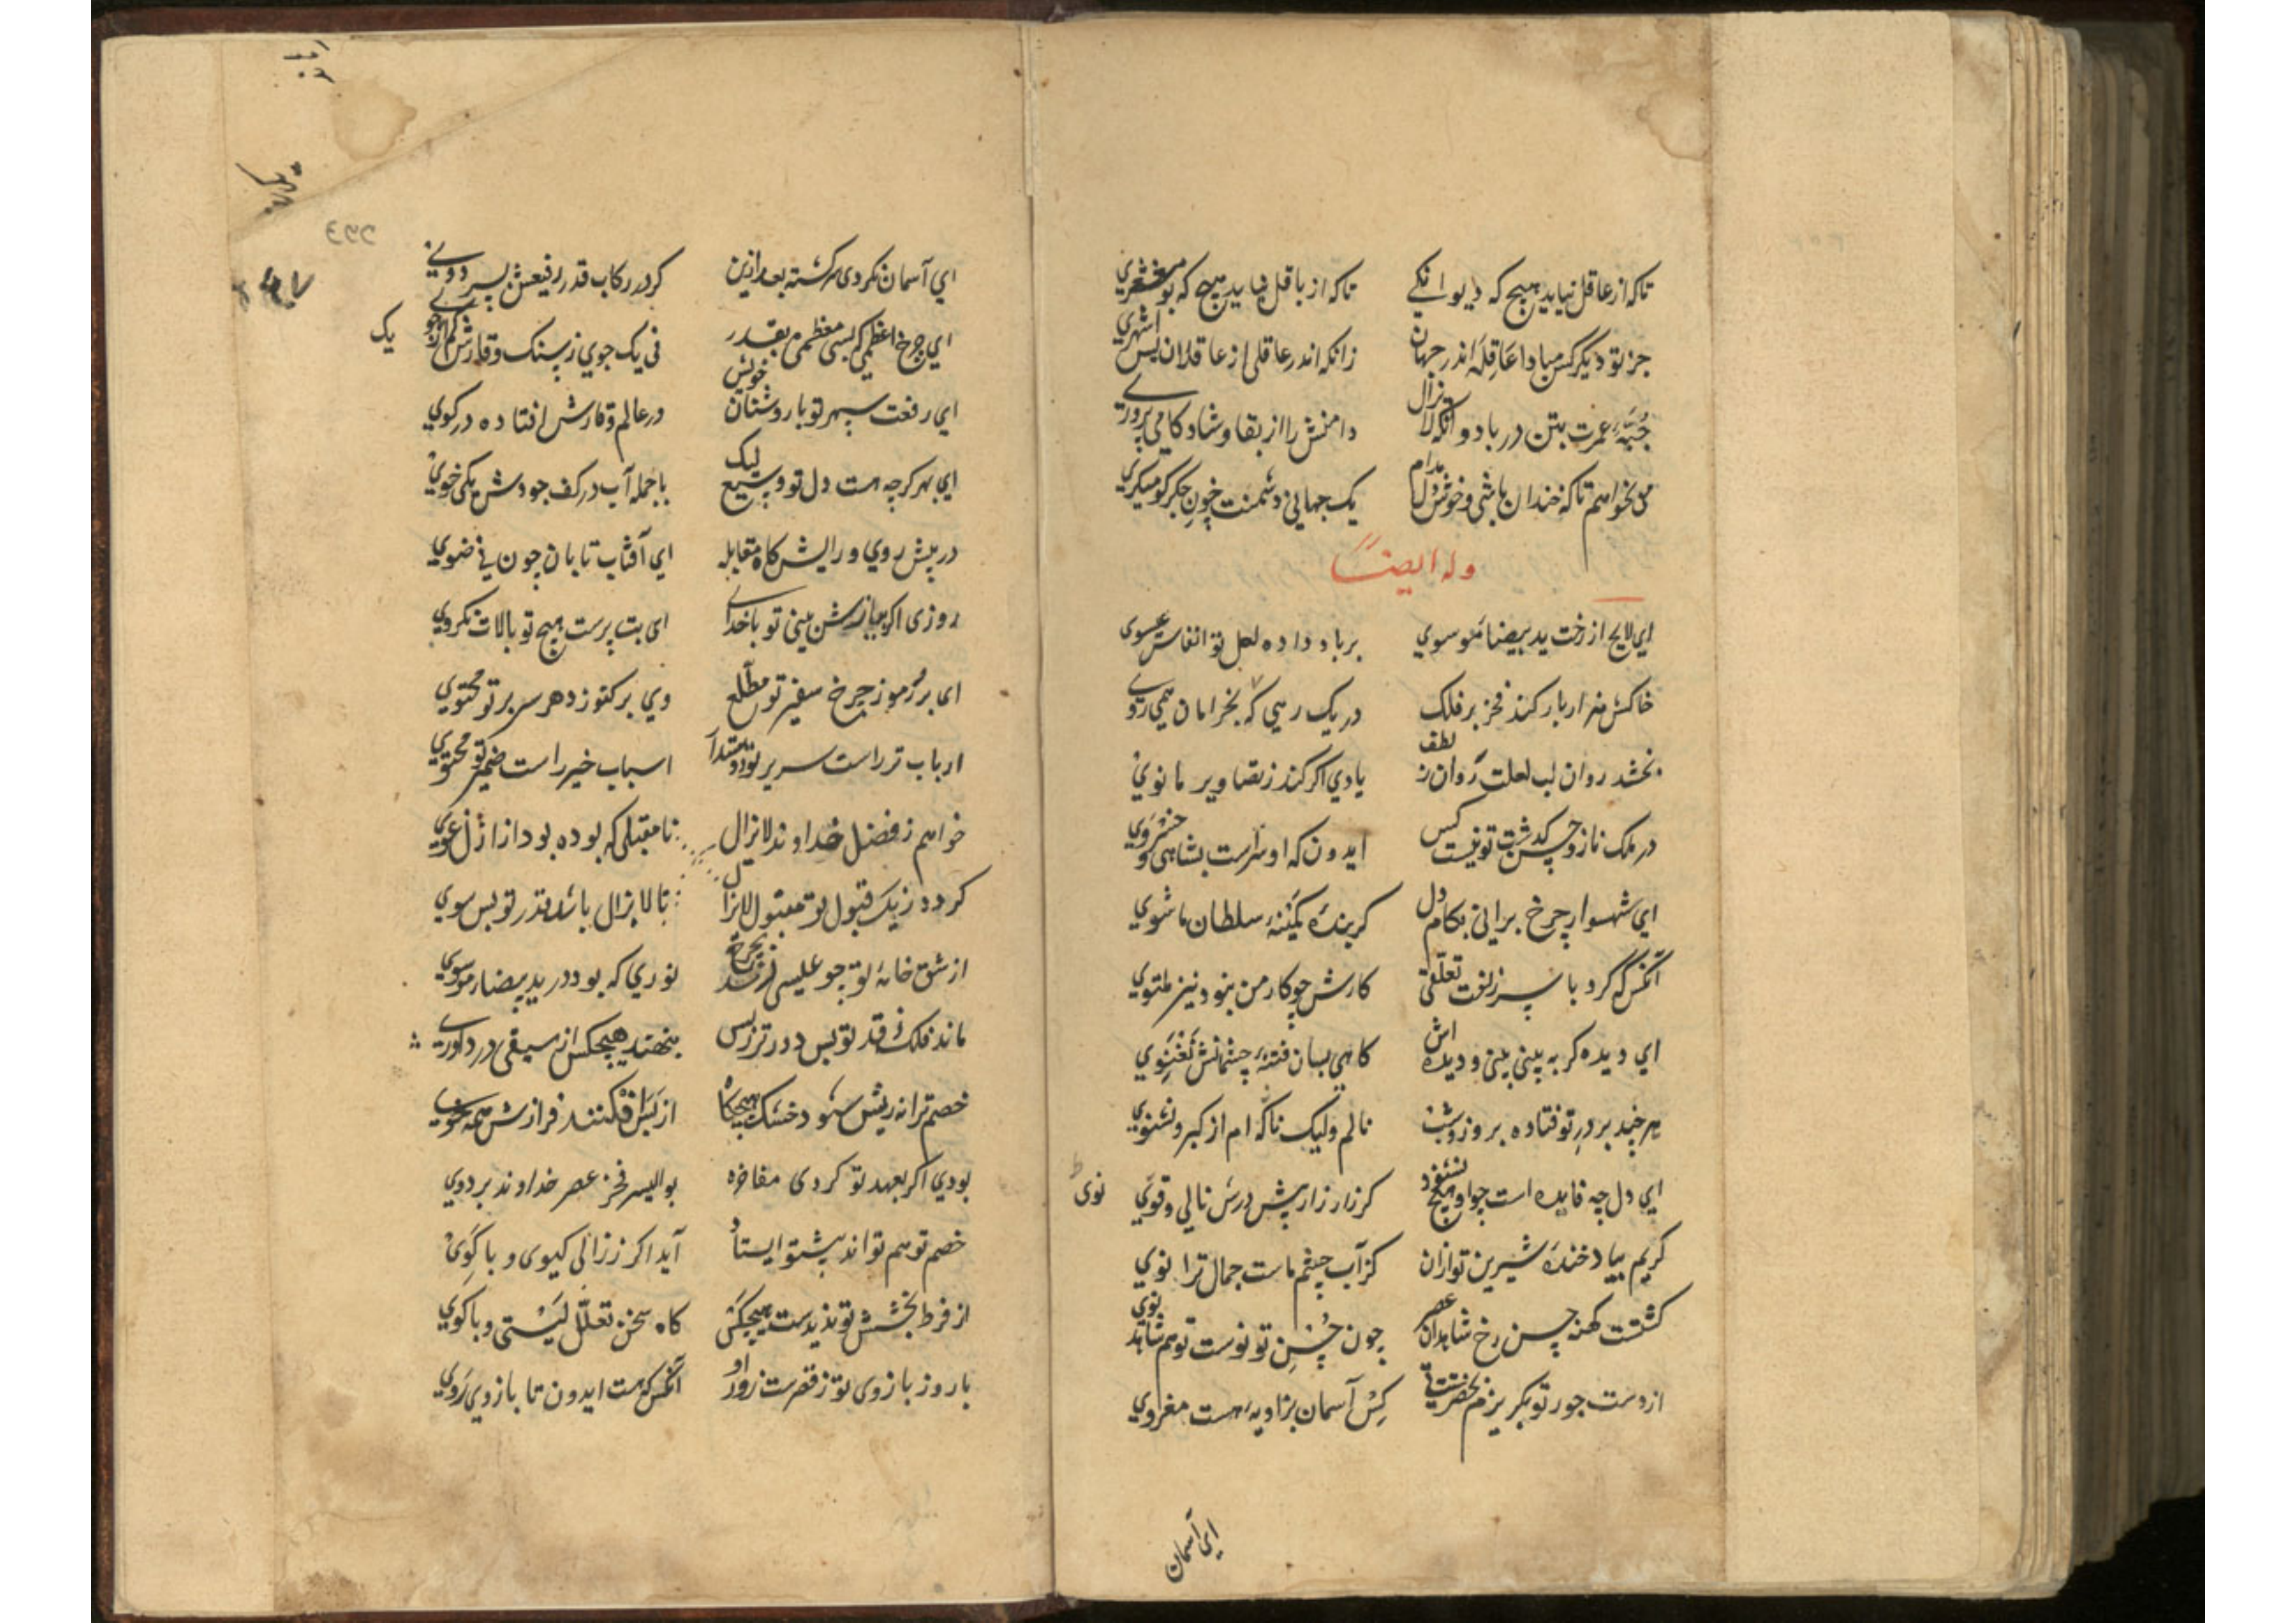 تا که از عاقل نیاید هیچ که دیوانکی تا که از باقل نیاید هیچ که
جز تو دیگر کس مبادا عاقله اندر جهان زانکه اندر عاقلی از عاقلان پس اشهری
جبّهٔ عمرت بتن در باد و انکه لایزال دامنش را از بقا و شادکامی پروری
می بخواهم تا که خندان باشی و خوش دل مدام یک جهانی دشمنت خون جکر کو میکری
وله ایضاً
ای لایح از رخت ید بیضاء موسوی بر باد داده لعل تو انفاس عیسوی
خاکش هزار بار کند فخر بر فلک در یک رهی که بخرامان همی روی
بخشد روان لب لعلت روان ز لطف یادی اکر کند ز تصاویر مانوی
در ملک ناز و حسن کست تو نیست کس ایدون که او سزاست بشاهی و خسروی
ای شهسوار چرخ برانی بکام دل کر بندهٔ کمینهٔ سلطان ما شوی
آنکس که کرد با سر زلفت تعلّقی کارش چو کار من بنود نیز ملتوی
ای دیده کر به بینی و دیده اش کاهی بسان فتنهٔ چشمانش نغنوی
هر چند بر در تو فتاده بروز و شب نالم ولیک ناکه ام از کبر نشنوی
ای دل چه فایده است چو او هیچ نشنود کر زار زار پیش درش نالی و قوی
نوی
کریم بیاد خندهٔ شیرین تو ازان کز آب چشم ماست جمال ترا نوی
کشتست کهنه حسن رخ شاهدان عصر چون حسن تو نوست تو هم شاهد نوی
از دست جور تو بکریزم بحضرتی کش آسمان بزاویه هست منزوی
ای آسمان
ای آسمان نکردی سرکشته بعد ازین کر در رکاب قدر رفیعش بسر دوی
ای چرخ اعظمی که بسی معظمی بقدر خویش نی یک جوی ز سنک وقارش کم از جوی
یک
ای رفعت سپهر تو با روشنان در عالم وقارش افتاده در کوی
ای بهر کرچه هست دل تو وسیع لیک با جمله آب در کف جودش یکی خوی
در پیش روی و رایش کاه مقابله ای آفتاب تابان چون نی ضوی
روزی اکر نیازش بینی تو با خدای ای بت پرست هیچ تو با لات نکروی
ای بر رموز چرخ سفیر تو مطّلع وی بر کنوز دهر سر بر تو محتوی
ارباب تر راست سریر تو مقتدا اسباب خیر راست ضمیر تو محتوی
خواهم ز فضل خداوند لایزال تا مقبلی که بوده بود از ازل غوی
کردد ز یک قبول تو مقبول لایزال تا لایزال باشد قدر تو بس سوی
از شق خانهٔ تو چو عیسی بچرخ نوری که بود در ید بیضاء موسوی
ماند فلک قدر تو بس دورتر ز پس ننهند هیچکس از سیقی در داوری
خصم ترا نه ریش شود خشک هیچکاه از بس افکنند فرازش همه خوی
بودی اکر بعهد تو کردی مفاخره بوالیسر فخر عصر خداوند بزدوی
خصم تو هم تواند پیشت ایستاد آید اکر ز زالی کیوی و با کوی
از فرط بخشش تو ندیدست هیچکس کاه سخن تعلّل لیستی و با کوی
با روز بازوی تو ز قهرست زور او آنکس که هست ایدون تا بازوی روی